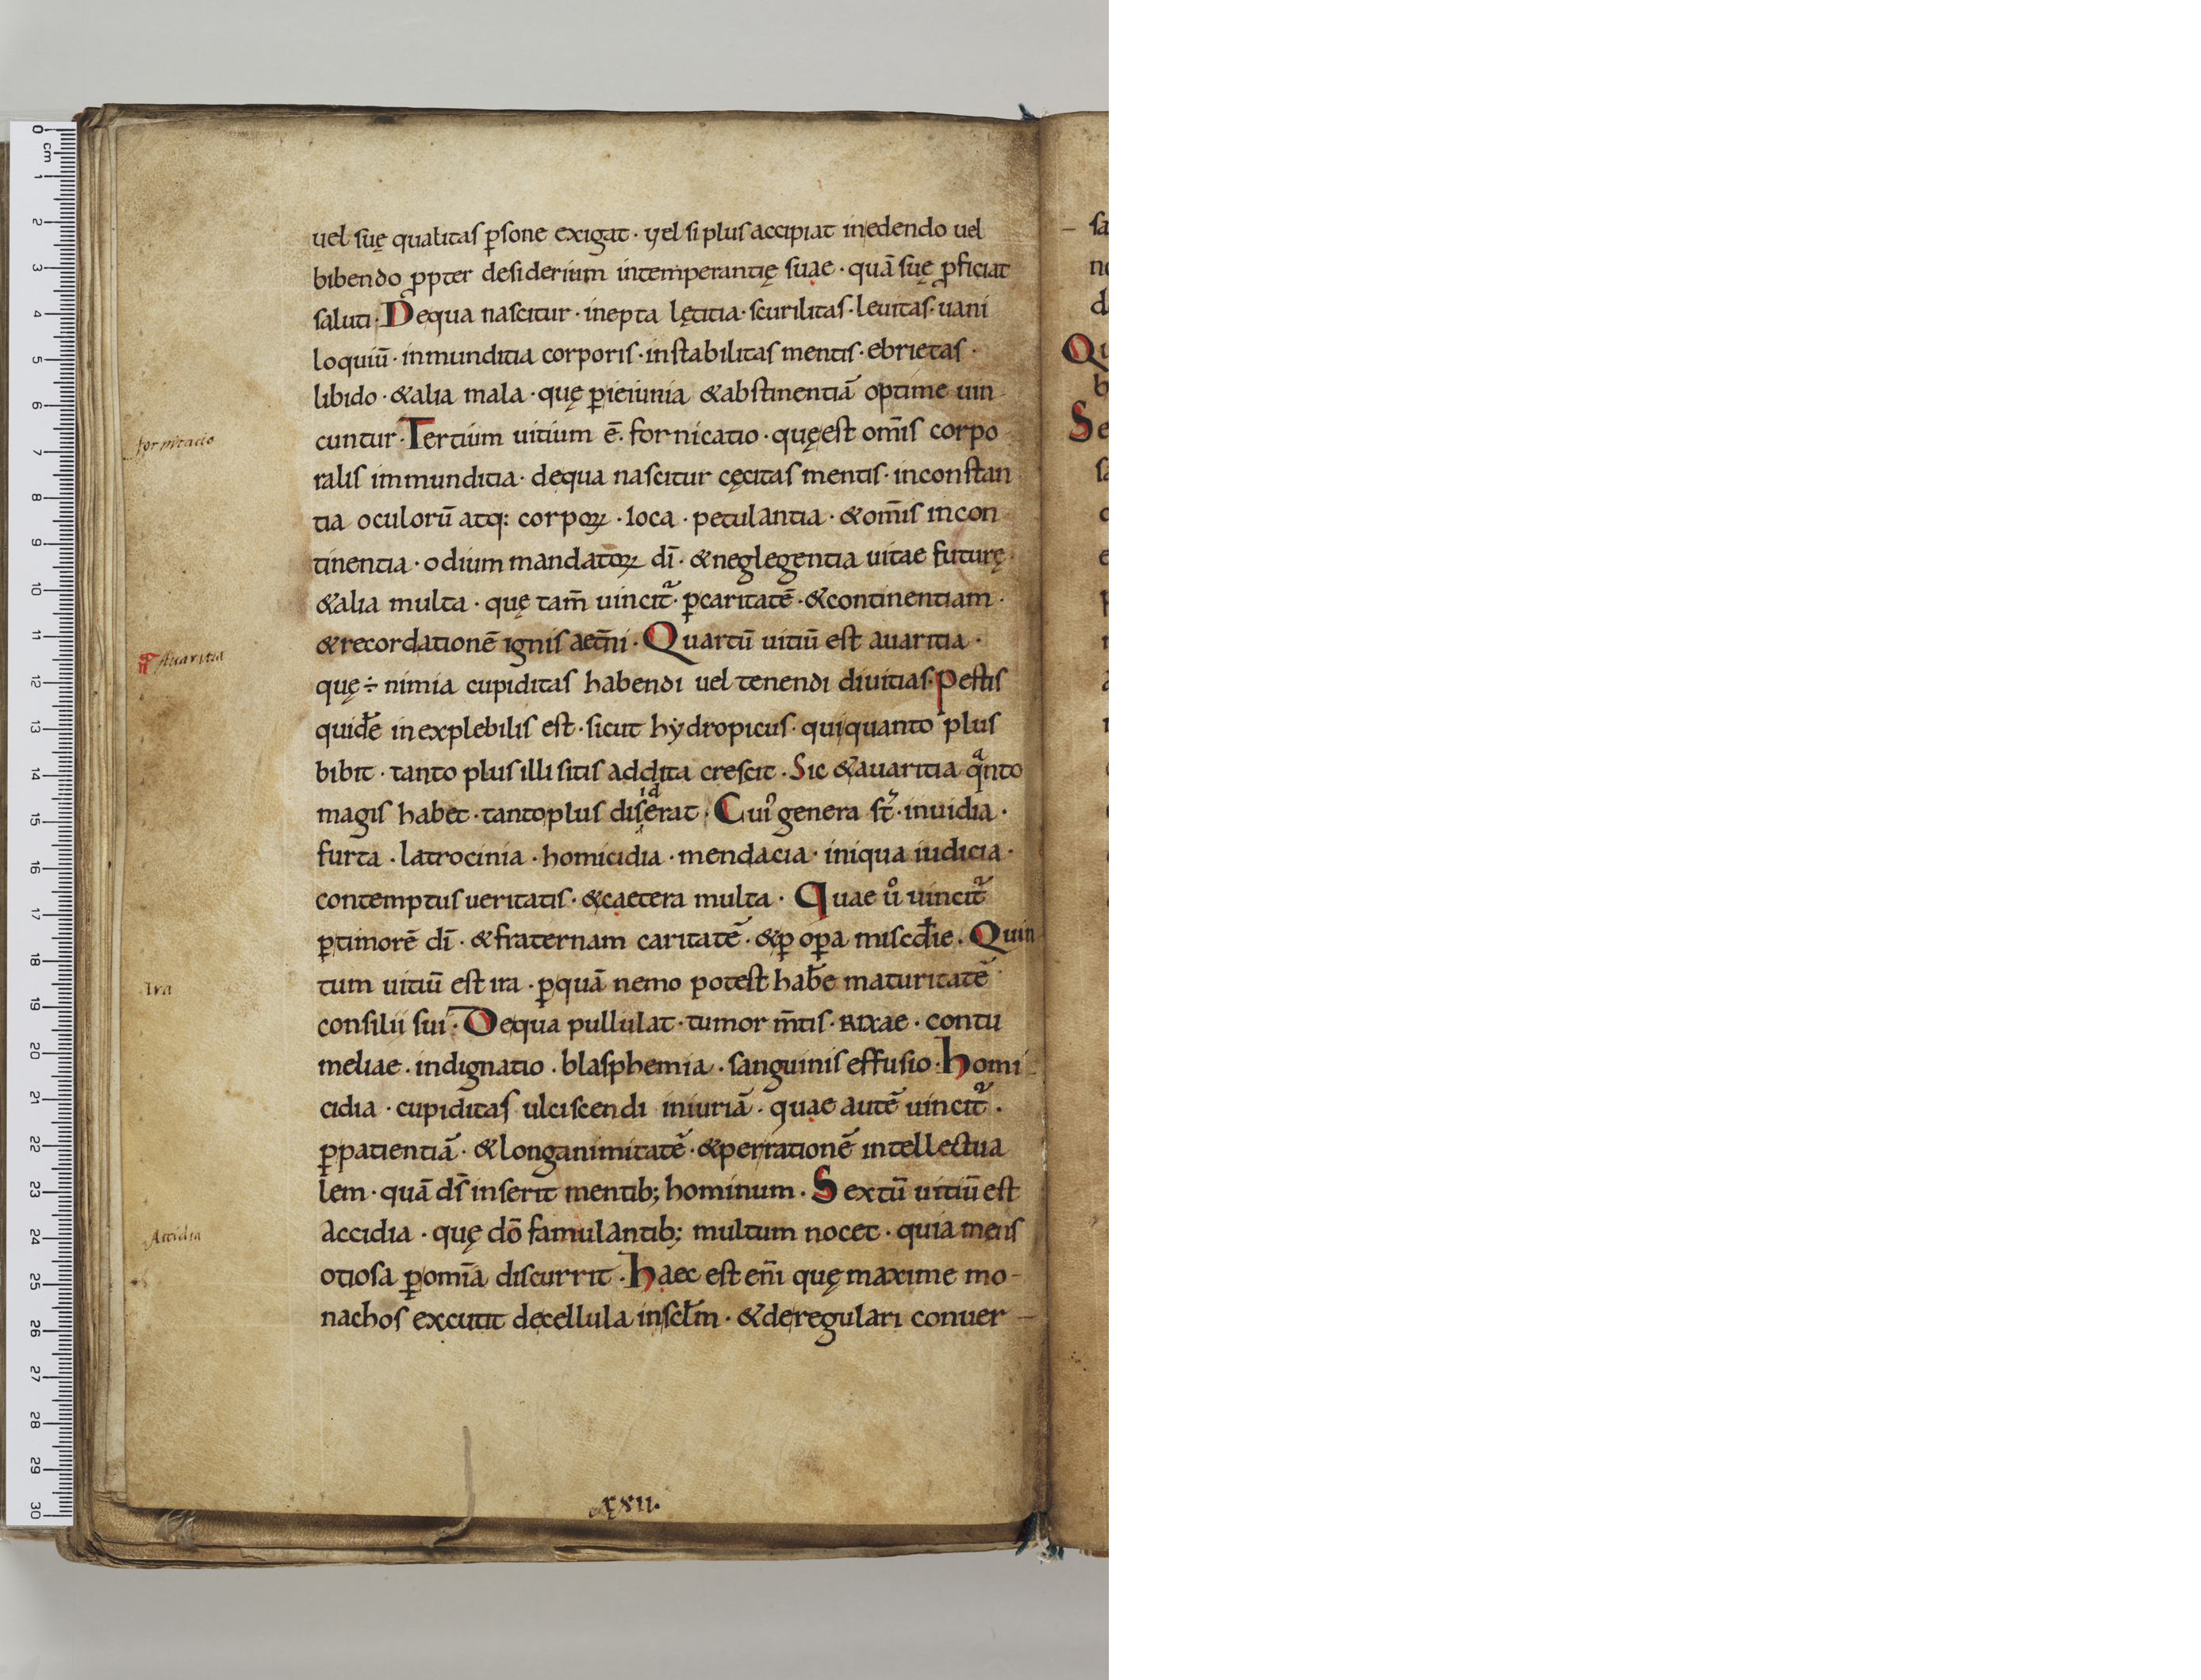 uel suę qualitas ꝑsone exigat · uel si plus accipiat inedendo uel
bibendo ꝓpter desiderium intemperantię suae · quā suę ꝓficiat
saluti · Dequa nascitur · inepta lętitia · scurilitas · leuitas · uani
loquiū · inmunditia corporis · instabilitas mentis · ebrietas ·
libido · &alia mala · quę ꝑieiunia &abstinentiā optime uin
fornicatio
cuntur · Tertium uitium ē · fornicatio · quęest om̄is corpo
ralis immunditia · dequa nascitur cęcitas mentis · inconstan
tia oculorū atq: corpoꝝ · ioca · petulantia · &om̄is incon
tinentia · odium mandatoꝝ dī · &neglegentia uitae futurę
&alia multa · quę tam̄ uincit᷑ · ꝑcaritatē · &continentiam ·
&recordationē ignis aet̄ni · Quartū uitiū est auaritia ·
Auaritia
quę ÷ nimia cupiditas habendi uel tenendi diuitias · Pestis
quidē inexplebilis est · sicut hẏdropicus · quiquanto plus
bibit · tanto plus illi sitis addita crescit · Sic &auaritia qͣnto
magis habet · tantoplus disęrat · Cuiꝰ genera st᷑ · inuidia ·
id
furta · latrocinia · homicidia · mendacia · iniqua iudicia ·
contemptus ueritatis · &caetera multa · Quae uͦ uincit᷑
ꝑtimorē dī · &fraternam caritatē · &ꝑ oꝑa miscđie · Quin
Ira
tum uitiū est ira · ꝑquā nemo potest habē maturitatē
consilii sui · Dequa pullulat · tumor m̄tis · RIXae · contu
meliae · indignatio · blasphemia · sanguinis effusio · homi
cidia · cupiditas ulciscendi iniuriā · quae autē uincit᷑ ·
ꝑpatientiā · &longanimitatē · &perrationē intellectua
lem · quā ds̄ inserit mentib; hominum · Sextū uitiū est
Accidia
accidia · quę dō famulantib; multum nocet · quia mens
otiosa ꝑomīa discurrit · haec est enī quę maxime mo-
nachos excutit decellula insclm̄ · &deregulari conuer-
XXII.